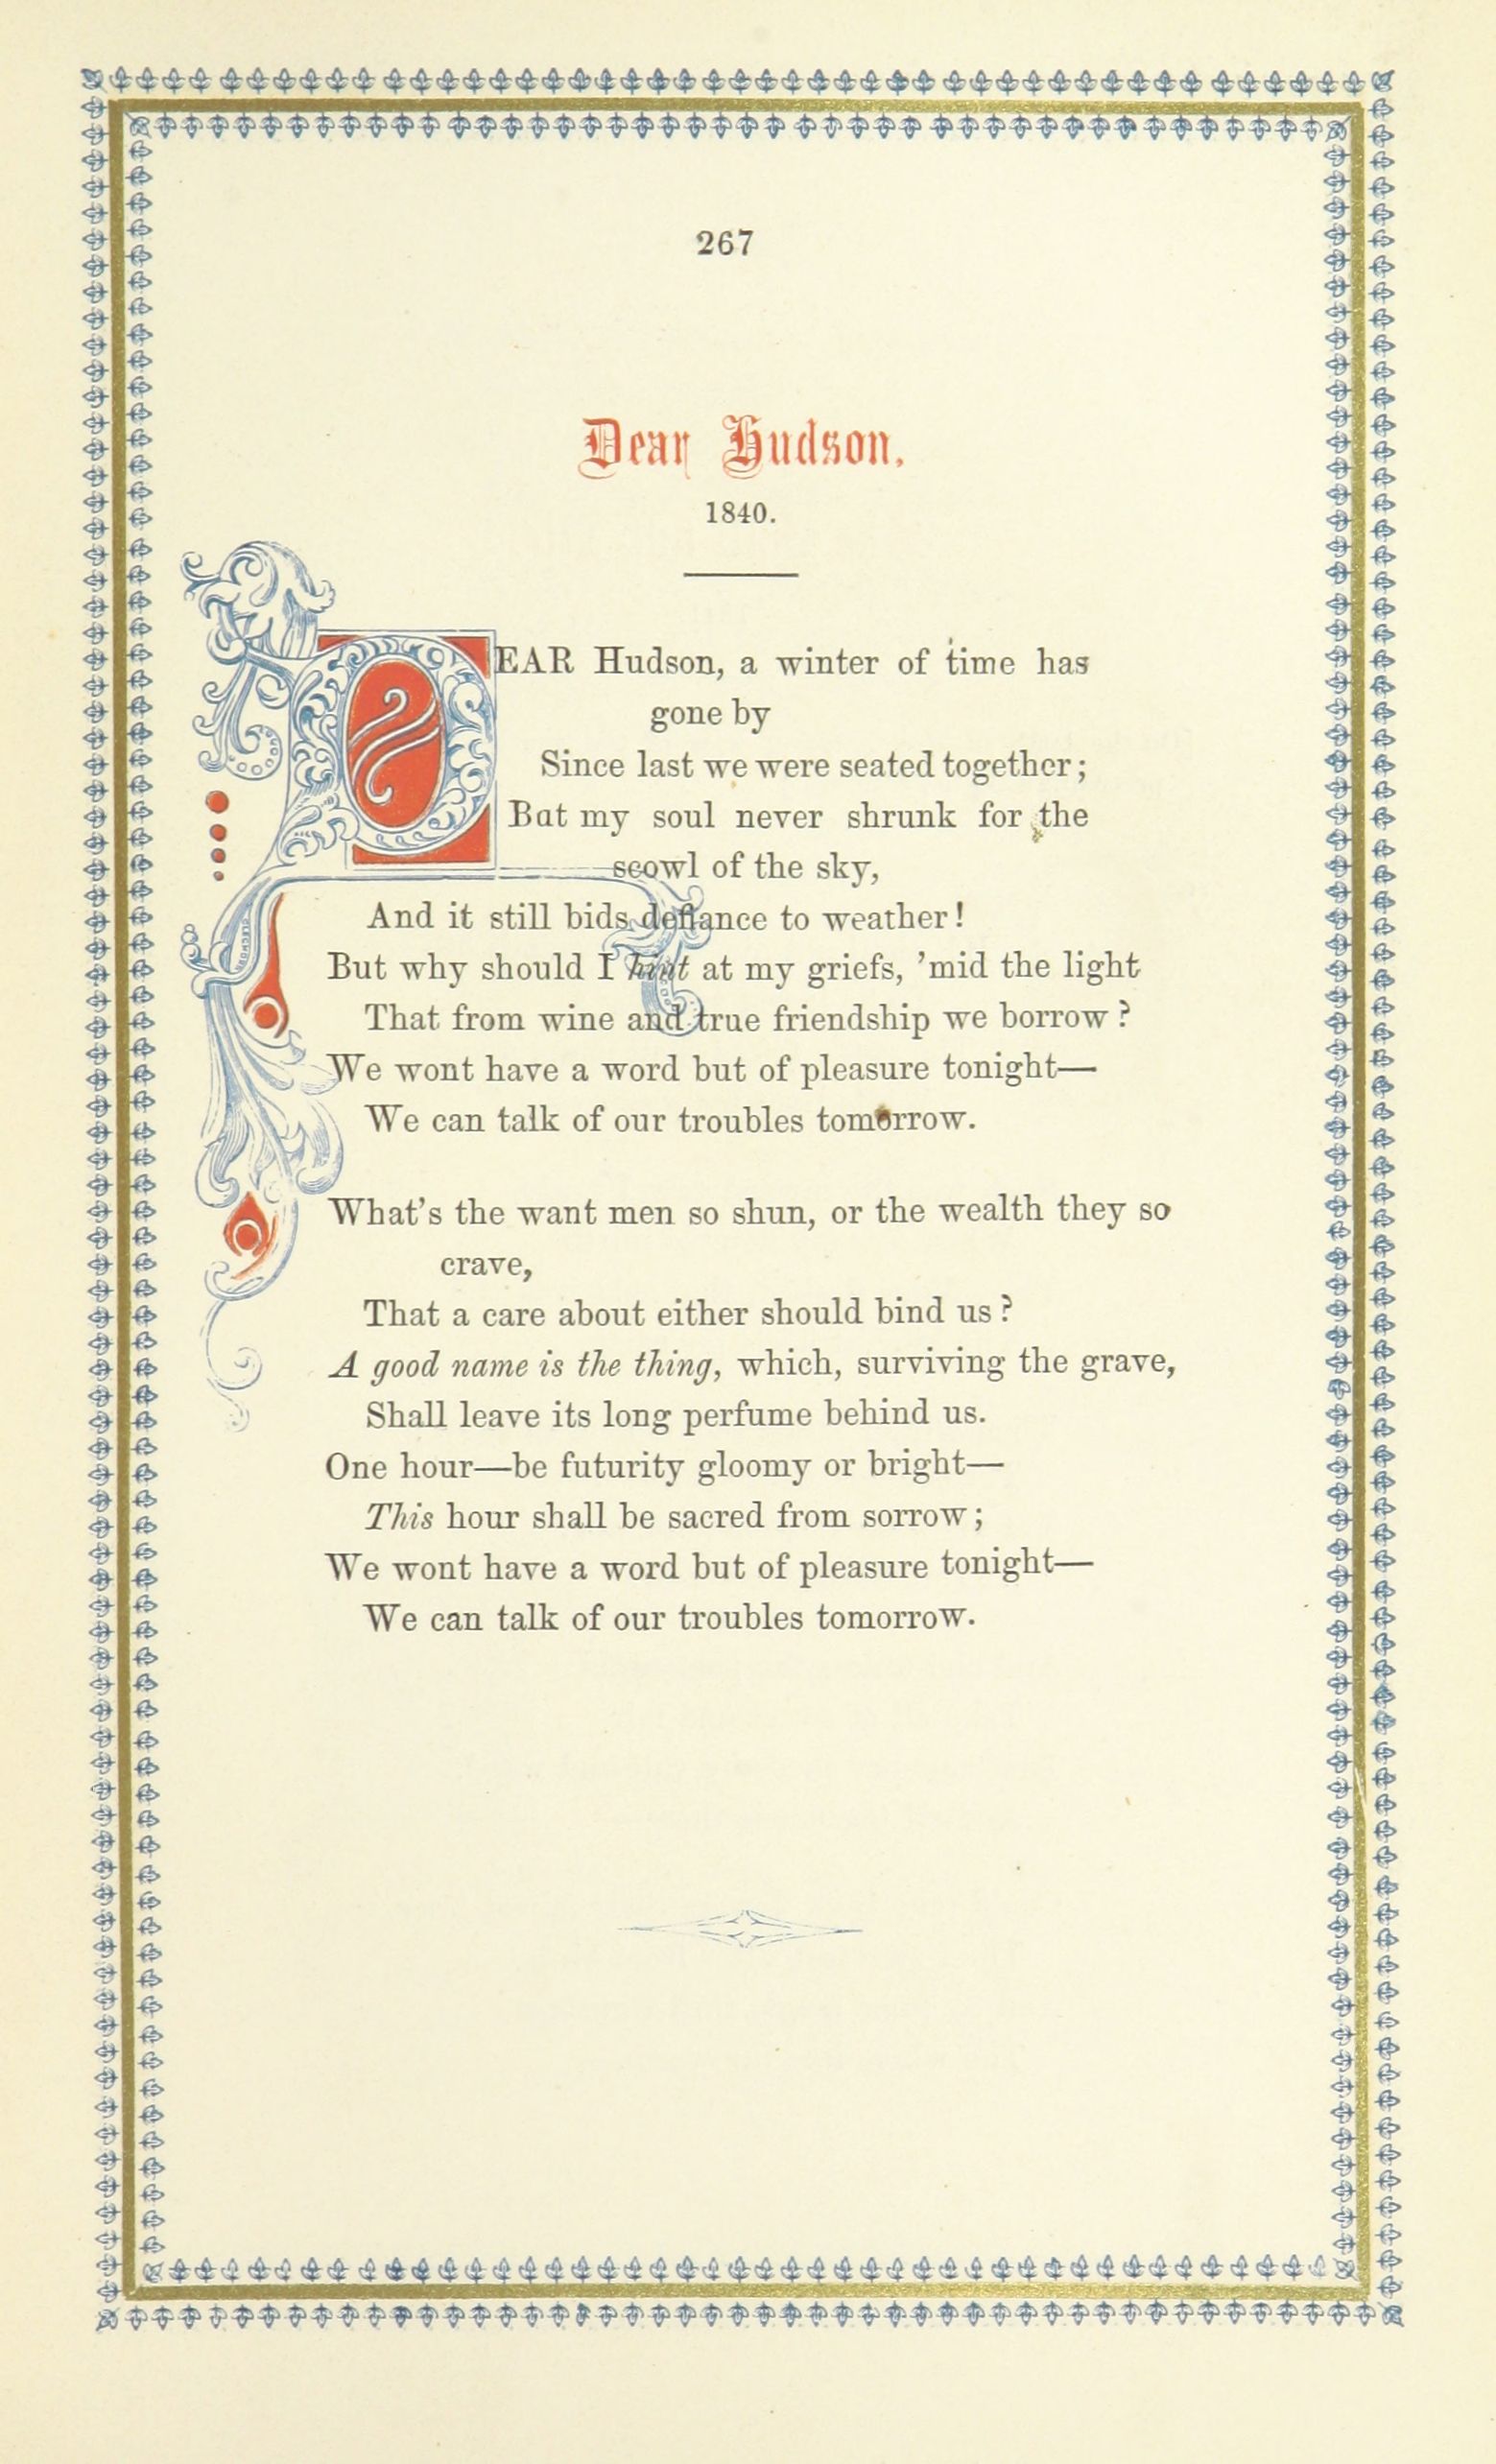 267
Dear Hudson.
1840.
DEAR Hudson, a winter of time has
gone by
Since last we were seated together;
But my soul never shrunk for the
scowl of the sky,
And it still bids defiance to weather!
But why should I hint at my griefs, 'mid the light
That from wine and true friendship we borrow?
We wont have a word but of pleasure tonight—
We can talk of our troubles tomorrow.
What's the want men so shun, or the wealth they so
crave,
That a care about either should bind us?
A good name is the thing, which, surviving the grave,
Shall leave its long perfume behind us.
One hour—be futurity gloomy or bright—
This hour shall be sacred from sorrow;
We wont have a word but of pleasure tonight—
We can talk of our troubles tomorrow.